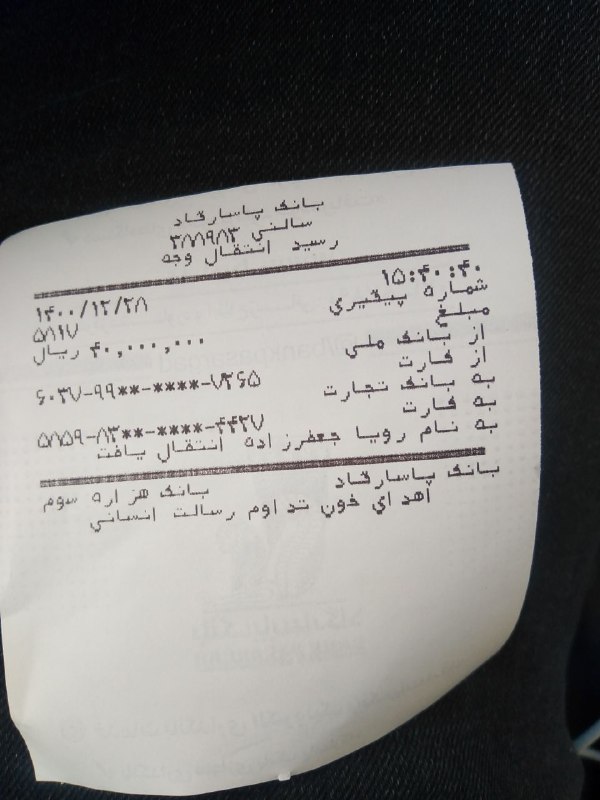 بانک پاسارگاد
سالنی ۳۸۸۹۸۳
رسید انتقال وجه
۱۴۰۰/۱۲/۲۸ ۱۵:۴۰:۴۰
شماره پیگیری ۵۸۱۷
مبلغ ۴۰,۰۰۰,۰۰۰ ریال
از بانک ملی
از کارت ۶۰۳۷-۹۹**-****-۷۳۶۵
به بانک تجارت
به کارت ۵۸۵۹-۸۳**-****-۴۴۲۷
به نام رویا جعفرزاده انتقال یافت
بانک پاسارگاد بانک هزاره سوم
اهدای خون تداوم رسالت انسانی